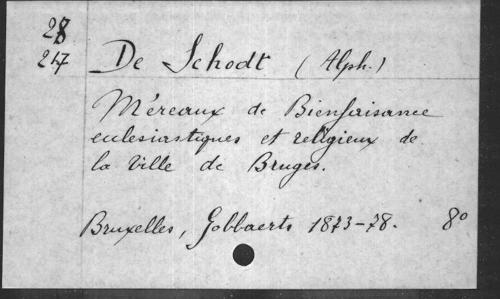 28
217 De Schodt (Alph.)
Méreaux de Bienfaisance
eclesiastiques et religieux de
la Ville de Bruges.
Bruxelles, Gobbaerts 1873-78. 8°